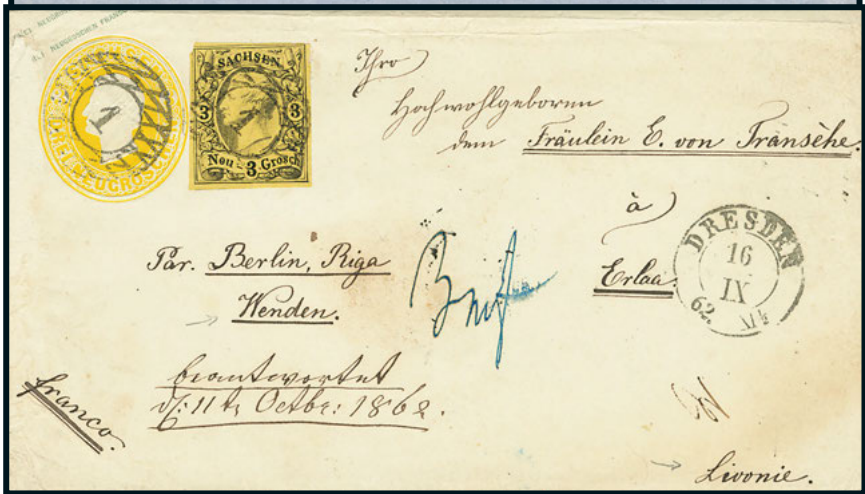 SACHSEN
3 3
Neu-3-Grosch
DREI NEUGROSCHEN
1
Ihro
Hochwohlgeboren
dem Fräulein E. von Transehe.
à
Erlaa.
DRESDEN
16
IX
62
Par. Berlin, Riga
Wenden.
beantwortet
d. 11t. Octbr: 1862.
franco.
Livonie.